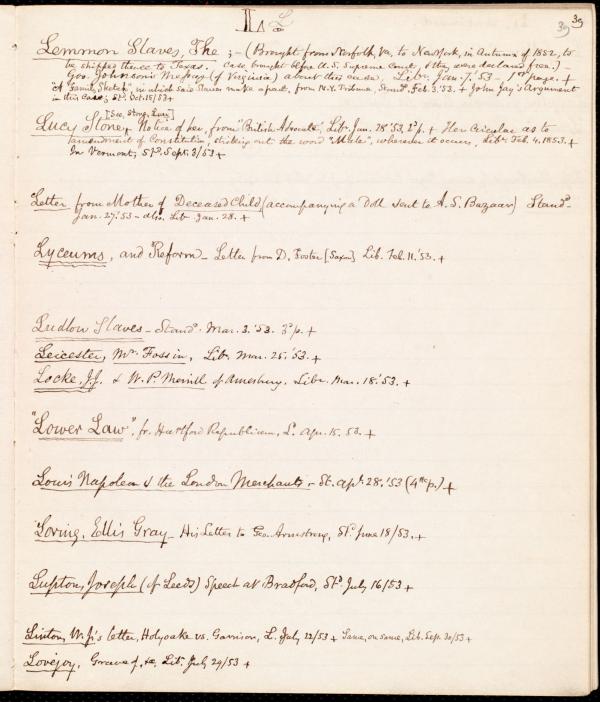 L. L 39 39
Lemmon Slaves, The ;- (Brought from Norfolk, Va. to New York, in Autumn of 1852, to
be shipped thence to Texas. Case brought before U.S. Supreme Court, & they were declared free.) -
Gov. Johnson's Message (of Virginia) about this case, Libr. Jan. 7. '53 - 1st page. +
"A Family Sketch", in which said Slaves make a part, from N.Y. Tribune, Stand. Feb. 3. '53. + John Jay's Argument
in this Case; St. Oct. 15/53+
[See, Stone, Lucy]
Lucy Stone, Notice of her, from "British Advocate," Lib. Jan. 28 '53, 1st p. + Her Circular as to
amendment of Constitution, striking out the word "Male", wherever it occurs, Libr. Feb. 4. 1853. +
In Vermont, Std. Sept. 3/53 +
Letter from Mother of Deceased Child (accompanying a Doll sent to A.S. Bazaar) Stand.
Jan. 27. '53 - also Lib. Jan. 28. +
Lyceums, and Reform - Letter from D. Foster [Saxon] Lib. Feb. 11. '53. +
Ludlow Slaves - Stand. Mar. 3. '53. 3d p. +
Leicester, Mr. Fossin, Lib. Mar. 25. '53. +
Locke, J.J. & W. P. Merrill of Amesbury. Libr. Mar. 18. '53. +
"Lower Law", fr. Hartford Republican, L. Apr. 15. 53. +
Louis Napoleon & the London Merchants - St. Apl. 28. '53 (4th p.) +
Loring, Ellis Gray - His Letter to Geo. Armstrong, Std June 18/53. +
Lupton, Joseph (of Leeds) Speech at Bradford, Std July 16/53 +
Linton, W. J.'s letter, Holyoake vs. Garrison, L. July 22/53 + Same, on same, Lib. Sep. 30/53 +
Lovejoy, Grave of, &c, Lib. July 29/53 +